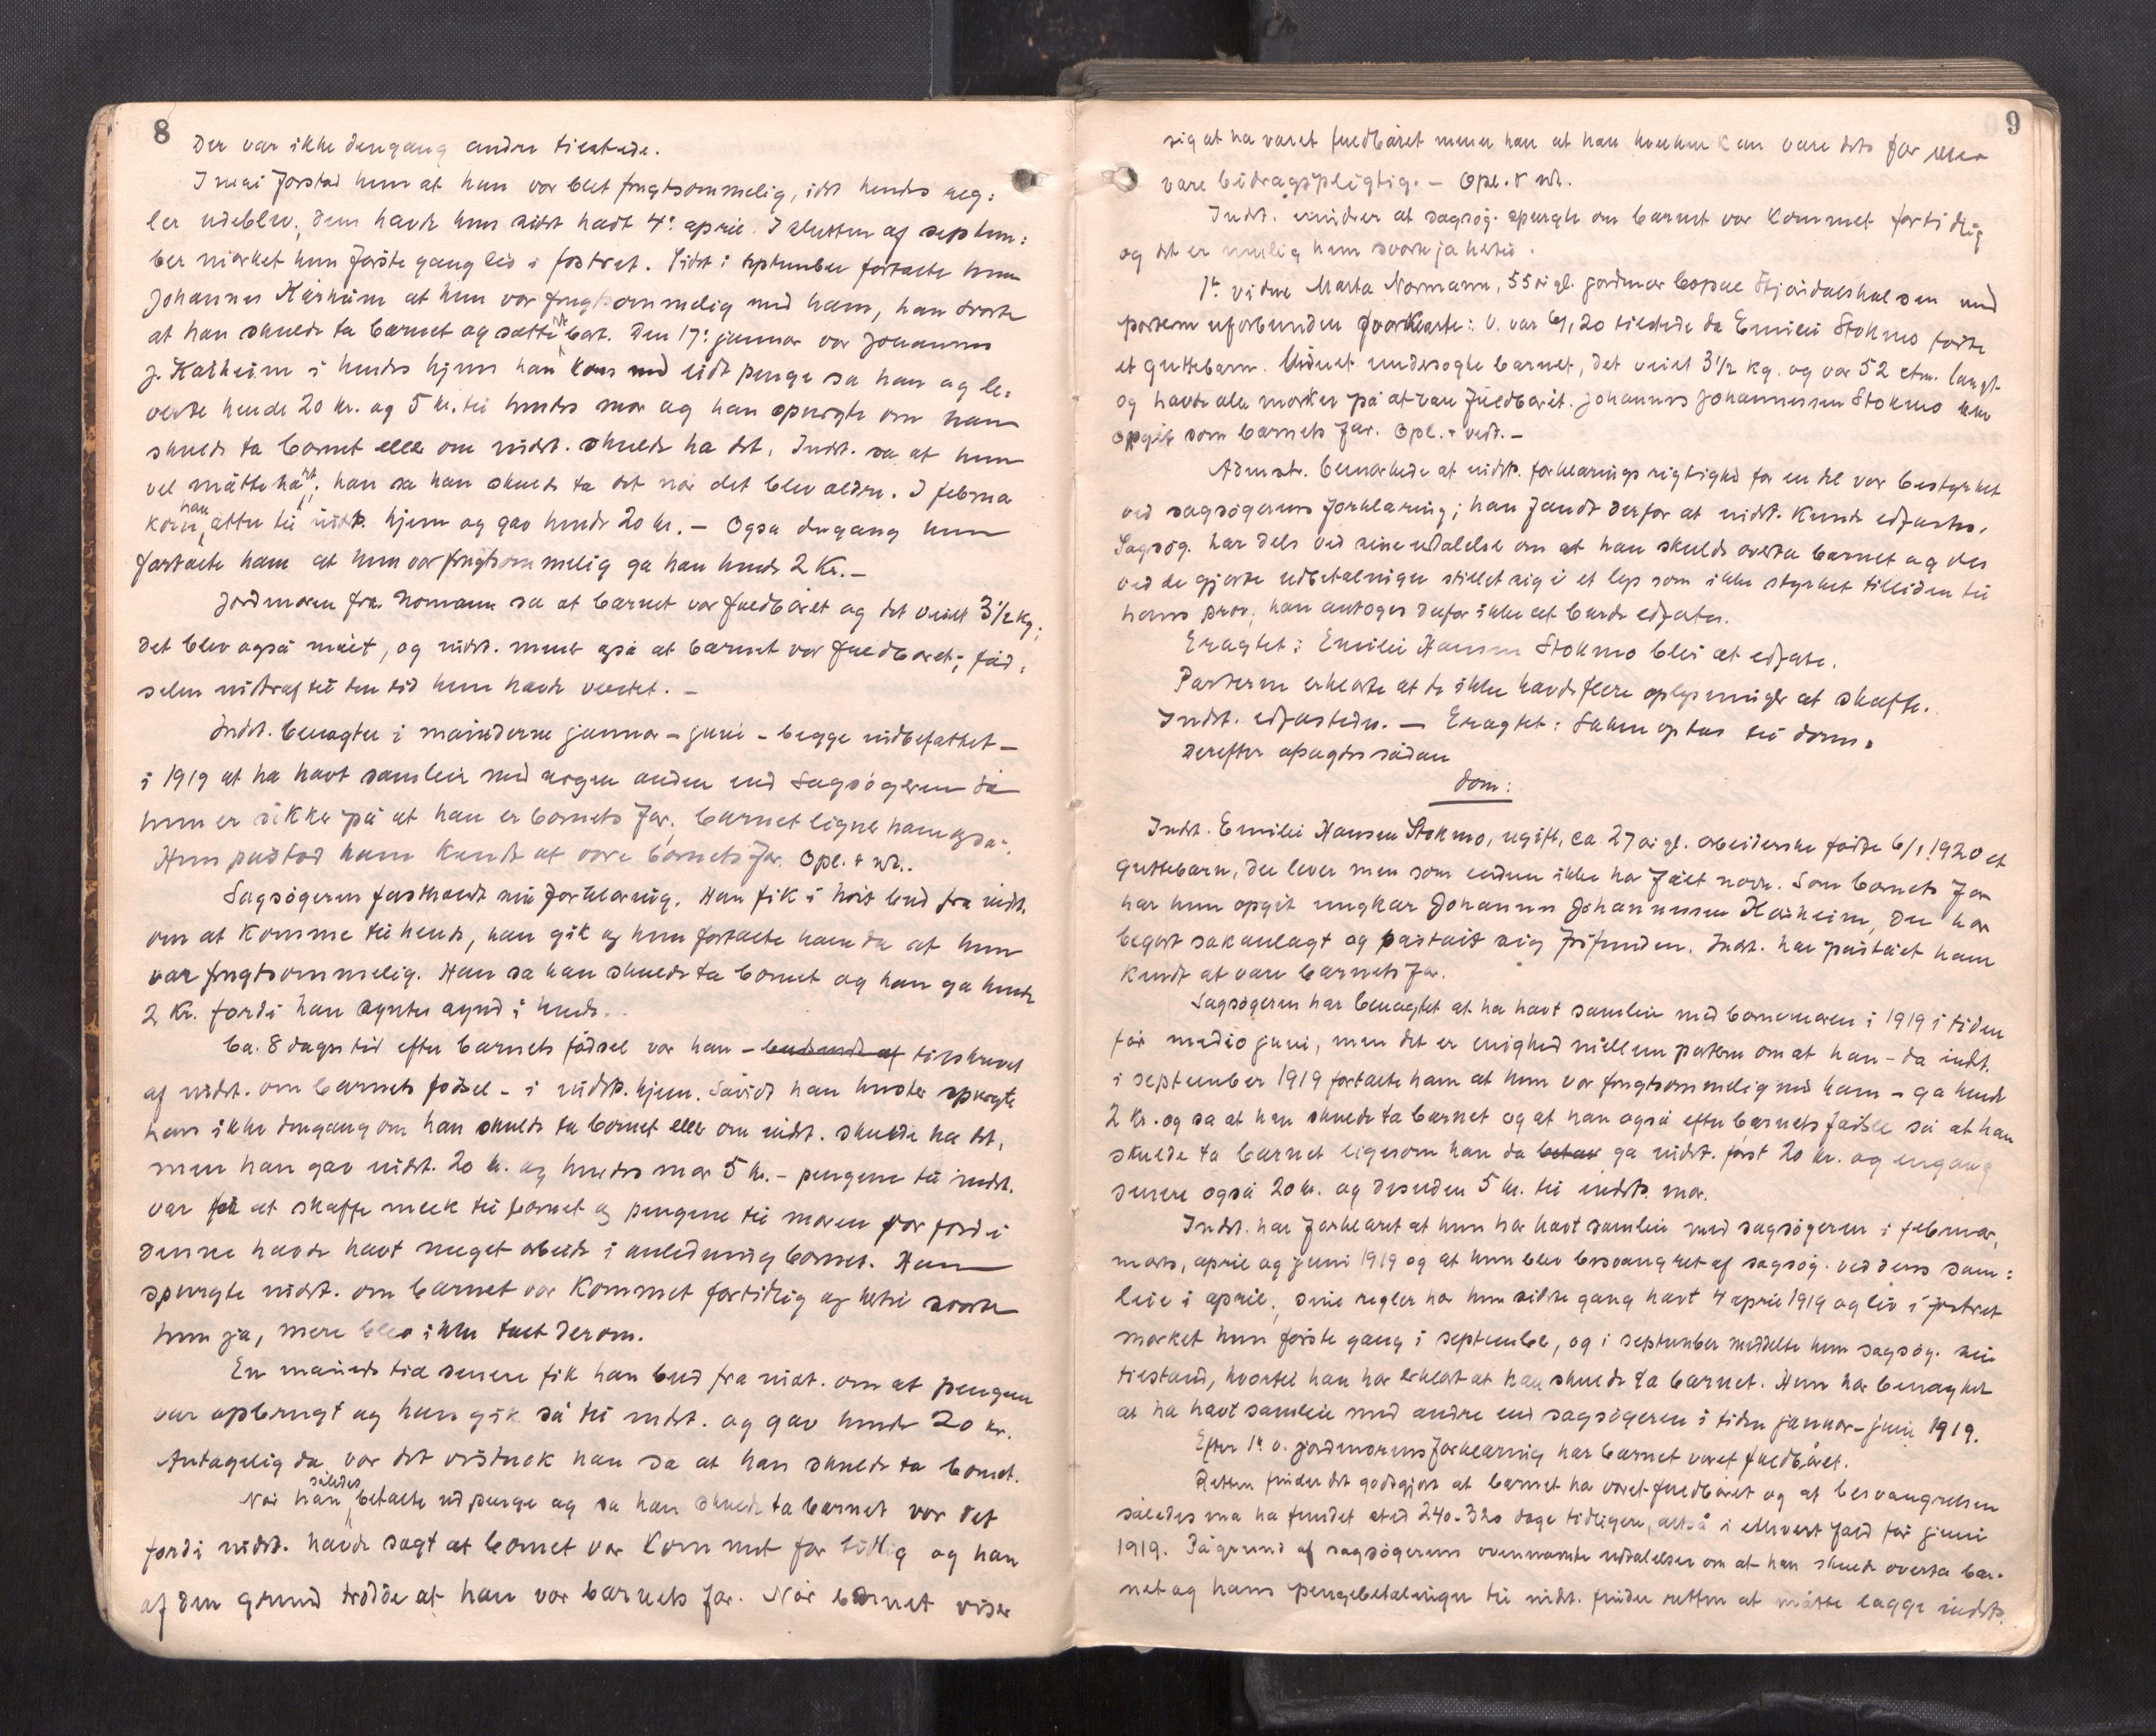 8
Der var ikke dengang andre tilstede.
I mai forstod hun at hun var blet frugtsommelig, idet hendes reg-
ler udeblev; dem havde hun sidst hadt 4: april. I slutten af septem-
ber merket hun første gang liv i fostret. Sidst i september fortalte hun
Johannes Kårheim at hun var frugtsommelig med ham, han svarte
at han skulde ta barnet og sætte det bort. Den 17: januar var Johannes
J. Kårheim i hendes hjem han kom med lidt penge sa han og le-
verte hende 20 kr. og 5 kr. til hendes mor og han spurgte om han
skulde ta barnet eller om indst. skulde ha det. Indst. sa at hun
vel måtte ha det; han sa han skulde ta det når det blev ældre. I februar
kom han atter til indst. hjem og gav hende 20 kr. – Også dengang hun
fortalte ham at hun var frugtsommelig ga han hende 2 Kr. –
Jordmoren fru Normann sa at barnet var fuldbåret og det veiet 3 1/2 kg;
det blev også målt, og indst. mener også at barnet var fuldbåret; fød-
selen indtraf til den tid hun havde ventet. –
Indst. benegter i månederne januar – juni – begge indbefattet –
i 1919 at ha havt samleie med nogen anden end Sagsøgeren så
hun er sikker på at han er barnets far; barnet ligner ham også.
Hun påstod ham kendt at være barnets far. Opl. & vedt.
Sagsøgeren fastholdt sin forklaring. Han fik i høst bud fra indst.
om at komme til hende, han gik og hun fortalte ham da at hun
var frugtsommelig. Han sa han skulde ta barnet og han ga hende
2 Kr. fordi han syntes synd i hende.
Ca. 8 dages tid efter barnets fødsel var han – tilskrevet
af indst. om barnets fødsel – i indst. hjem. Såvidt han husker spurgte
han ikke dengang om han skulde ta barnet eller om indst. skulde ha det,
men han gav indst. 20 kr. og hendes mor 5 kr. – pengene til indst.
var for at skaffe melk til barnet og pengene til moren var fordi
denne havde havt meget arbeide i anledning barnet. Han
spurgte indst. om barnet var kommet fortidlig og hertil svarte
hun ja, mere blev ikke talt derom.
En måneds tid senere fik han bud fra indst. om at pengene
var opbrugt og han gik så til indst. og gav hende 20 kr.
Antagelig da var det vistnok han sa at han skulde ta barnet.
Når han således betalte ud penge og sa han skulde ta barnet var det
fordi indst. havde sagt at barnet var kommet for tidlig og han
af den grund trodde at han var barnets far. Når barnet viser
9
sig at ha været fuldbåret mener han at han hverken kan være dets far eller
være bidragspligtig. – Opl. & vedt.
Indst. erindrer at sagsøg. spurgte om barnet var kommet fortidlig
og det er mulig hun svarte ja hertil.
1ste vidne Marta Normann, 55 år gl. jordmor bopæl Stjørdalshalsen med
parterne uforbunden forklarte: V. var 6/1,20 tilstede da Emilie Stokmo fødte
et guttebarn. Vidnet undersøgte barnet, det veiet 3 1/2 kg. og var 52 ctm. langt
og havde alle mærker på at være fuldbårit. Johannes Johannessen Stokmo blev
opgit som barnets far. Opl. & vedt. –
Admstr. bemærkede at indst. forklarings rigtighed for en del var bestyrket
ved sagsøgerens forklaring; han fandt derfor at indst. kunde edfæstes.
Sagsøg. har dels ved sine udtalelser om at han skulde overta barnet og dels
ved de gjorte udbetalinger stillet sig i et lys som ikke styrket tilliden til
hans prov; han antoges derfor ikke at burde edfæstes.
Eragtet: Emilie Hansen Stokmo blir at edfæste.
Parterne erklærte at de ikke havde flere oplysninger at skaffe.
Indst. edfæstedes. – Eragtet: Saken optas til doms.
Derefter afsagdes sådan
dom:
Indst. Emilie Hansen Stokmo, ugift, ca. 27 år gl. arbeiderske fødte 6/1 1920 et
guttebarn, der lever men som endnu ikke ha fået navn. Som barnets far
har hun opgit ungkar Johannes Johannessen Kårheim, der har
begært sak anlagt og påstået sig frifunden. Indst. har påstået ham
kendt at være barnets far.
Sagsøgeren har benegtet at ha havt samleie med barnemoren i 1919 i tiden
før medio juni, men det er enighed mellem parterne om at han – da indst.
i september 1919 fortalte ham at hun var frugtsommelig med ham – ga hende
2 kr. og sa at han skulde ta barnet og at han også efter barnets fødsel sa at han
skulde ta barnet ligesom han da ga indst. først 20 kr. og engang
senere også 20 kr. og desuden 5 kr. til indsts. mor.
Indst. har forklaret at hun har havt samleie med sagsøgeren i februar,
mars, april og juni 1919 og at hun blev besvangret af sagsøg. ved deres sam-
leie i april; sine regler har hun sidste gang havt 4 april 1919 og liv i fostret
mærket hun første gang i september, og i september meddelte hun sagsøg. sin
tilstand, hvortil han har erklært at han skulde ta barnet. Hun har benegtet
at ha havt samleie med andre end sagsøgeren i tiden januar – juni 1919.
Efter 1ste v. jordmorens forklaring har barnet været fuldbåret.
Retten finder det godtgjort at barnet ha været fuldbåret og at besvangrelsen
således må ha fundet sted 240-320 dage tidligere, altså i ethvert fald før juni
1919. På grund af sagsøgerens ovennævnte udtalelser om at han skulde overta bar-
net og hans pengebetalinger til indst. finder retten at måtte lægge indsts.